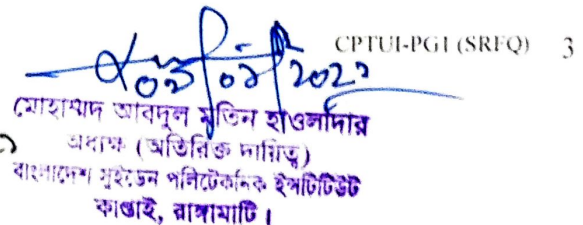 CPTUI-PG1 (SRFQ) 3
মোহাম্মদ আবদুল মতিন হাওলাদার
অধ্যক্ষ (অতিরিক্ত দায়িত্ব)
বাংলাদেশ সুইডেন পলিটেকনিক ইন্সটিটিউট
কাপ্তাই, রাঙ্গামাটি।